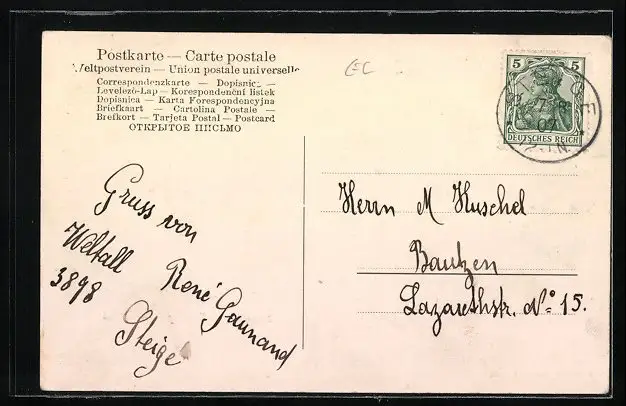 Postkarte — Carte postale
Weltpostverein — Union postale universelle
Correspondenzkarte — Dopisnic —
Levelező-Lap — Korespondenční lístek
Dopisnica — Karta Forespondencyjna
Briefkaart — Cartolina Postale —
Brefkort — Tarjeta Postal — Postcard
ОТКРЫТОЕ ПИСЬМО
GC
5 5
DEUTSCHES REICH
Gruss von
Weltall René Gaunand
3898
Steige
Herrn M Kuschel
Bautzen
Lazarethstr. No 15.